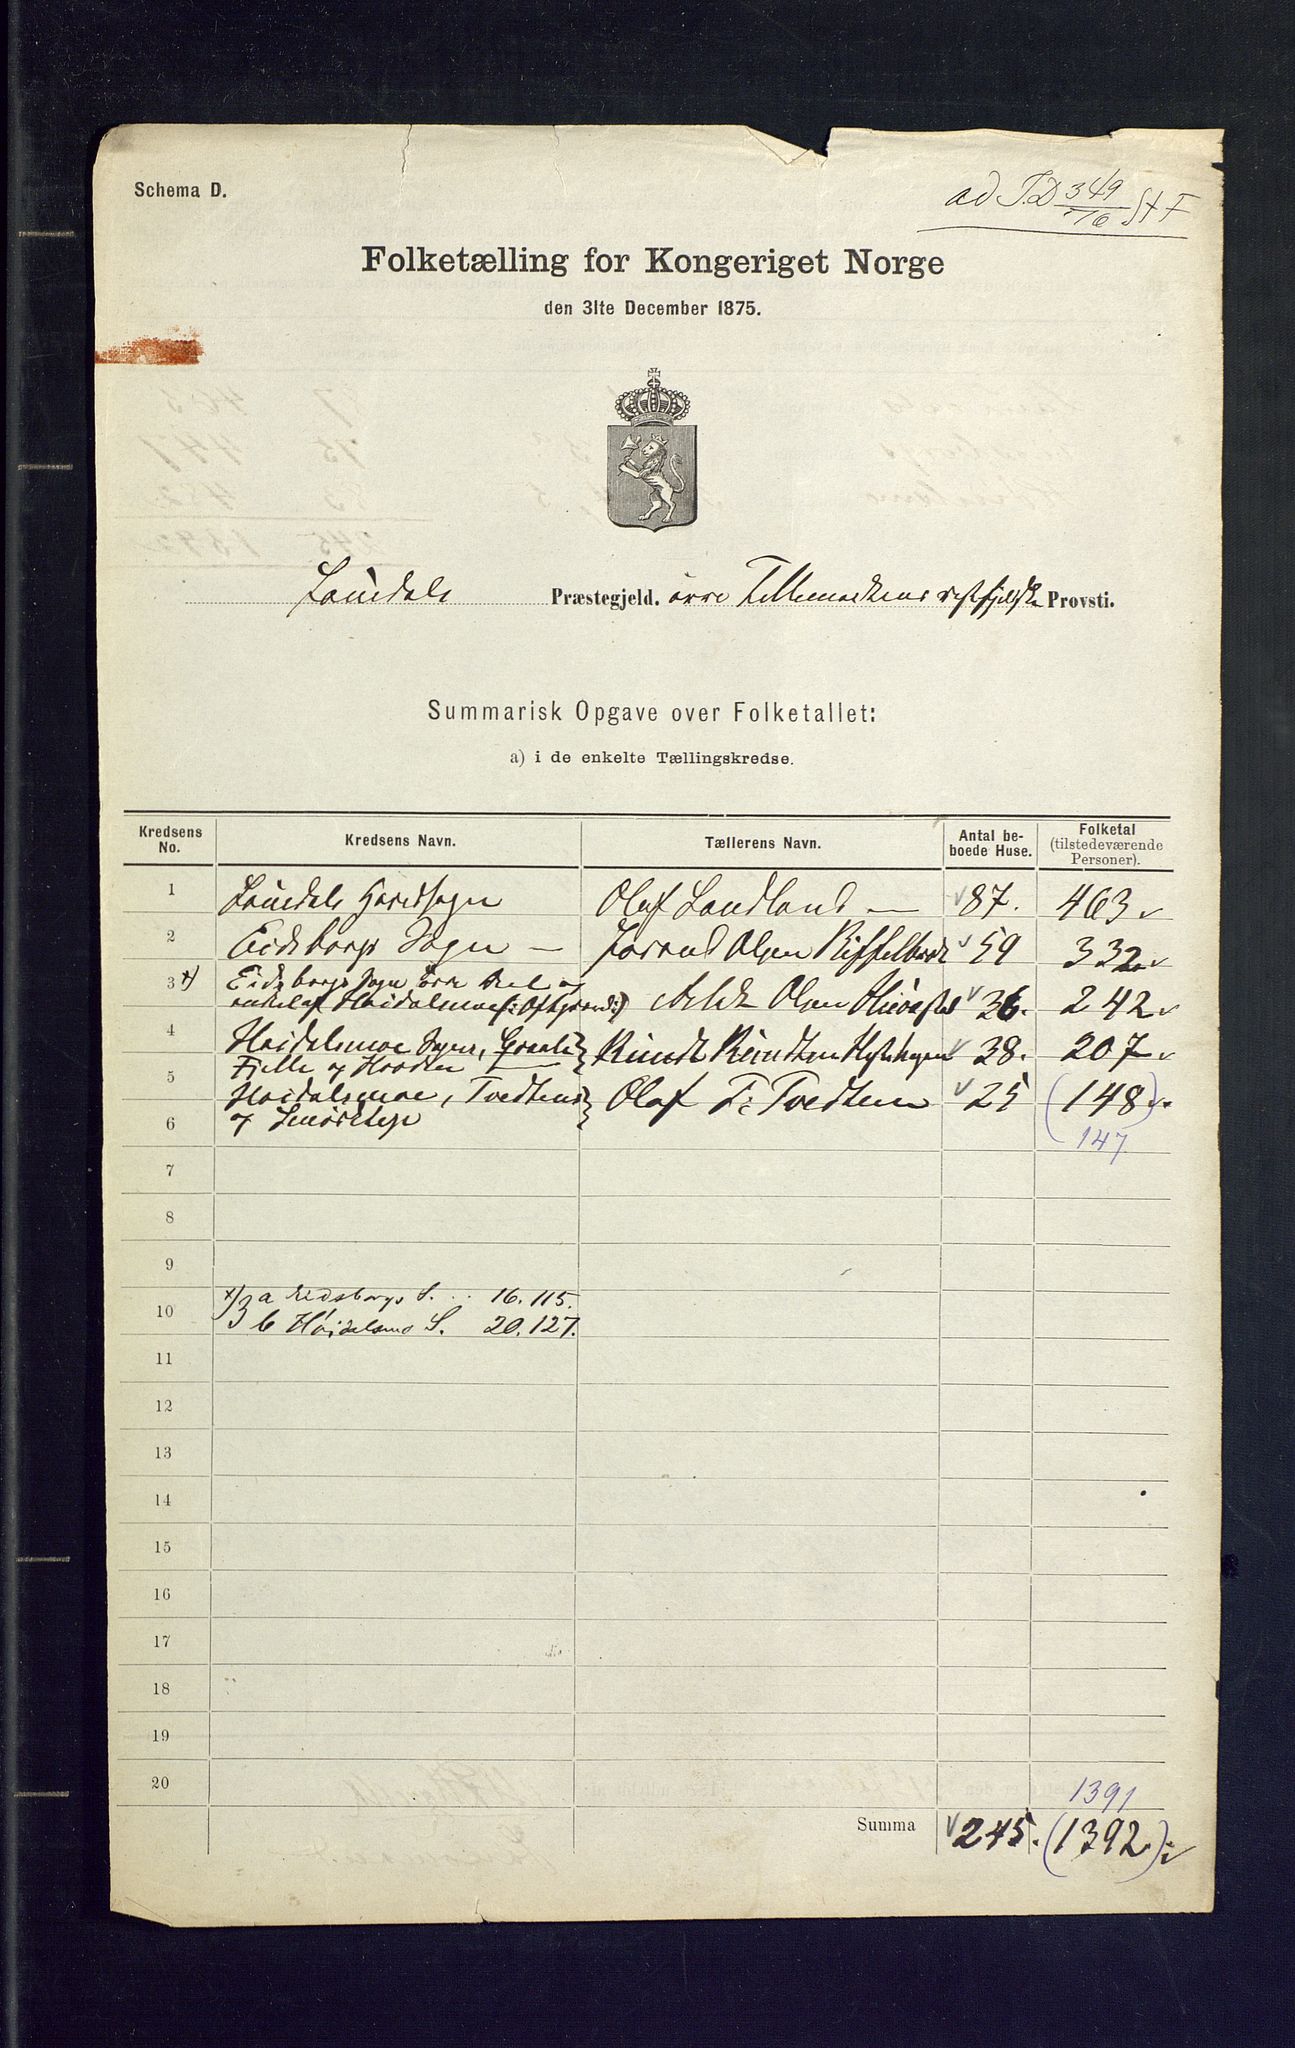 Schema D.
ad J.D 349/76 St F
Folketælling for Kongeriget Norge
den 31te December 1875.
Laurdals Præstegjeld. øvre Tellemarkens vestfjeldske Provsti.
Summarisk Opgave over Folketallet:
a) i de enkelte Tællingskredse.
Kredsens No. Kredsens Navn. Tællerens Navn. Antal beboede Huse. Folketal (tilstedeværende Personer).
1 Laurdals Hovedsogn Olaf Landland — 87. 463
2 Eidsborgs Sogn — Olsen 59 332
3 x) Eidsborgs Sogn Øvre Deel og
endel af Høidalsmoe Olsen 36. 242
4 Høidalsmoe Sogn, 38. 207
Fjelle og
5 Høidalsmoe, Tvedtens Olaf T: Tvedten 25 (148)
6 og 147
7
8
9
x) 3 a Eidsborgs S. .. 16. 115.
10
3 b Høidalsmo S. 20. 127.
11
12
13
14
15
16
17
18
19
20 1391
Summa 245. (1392.)